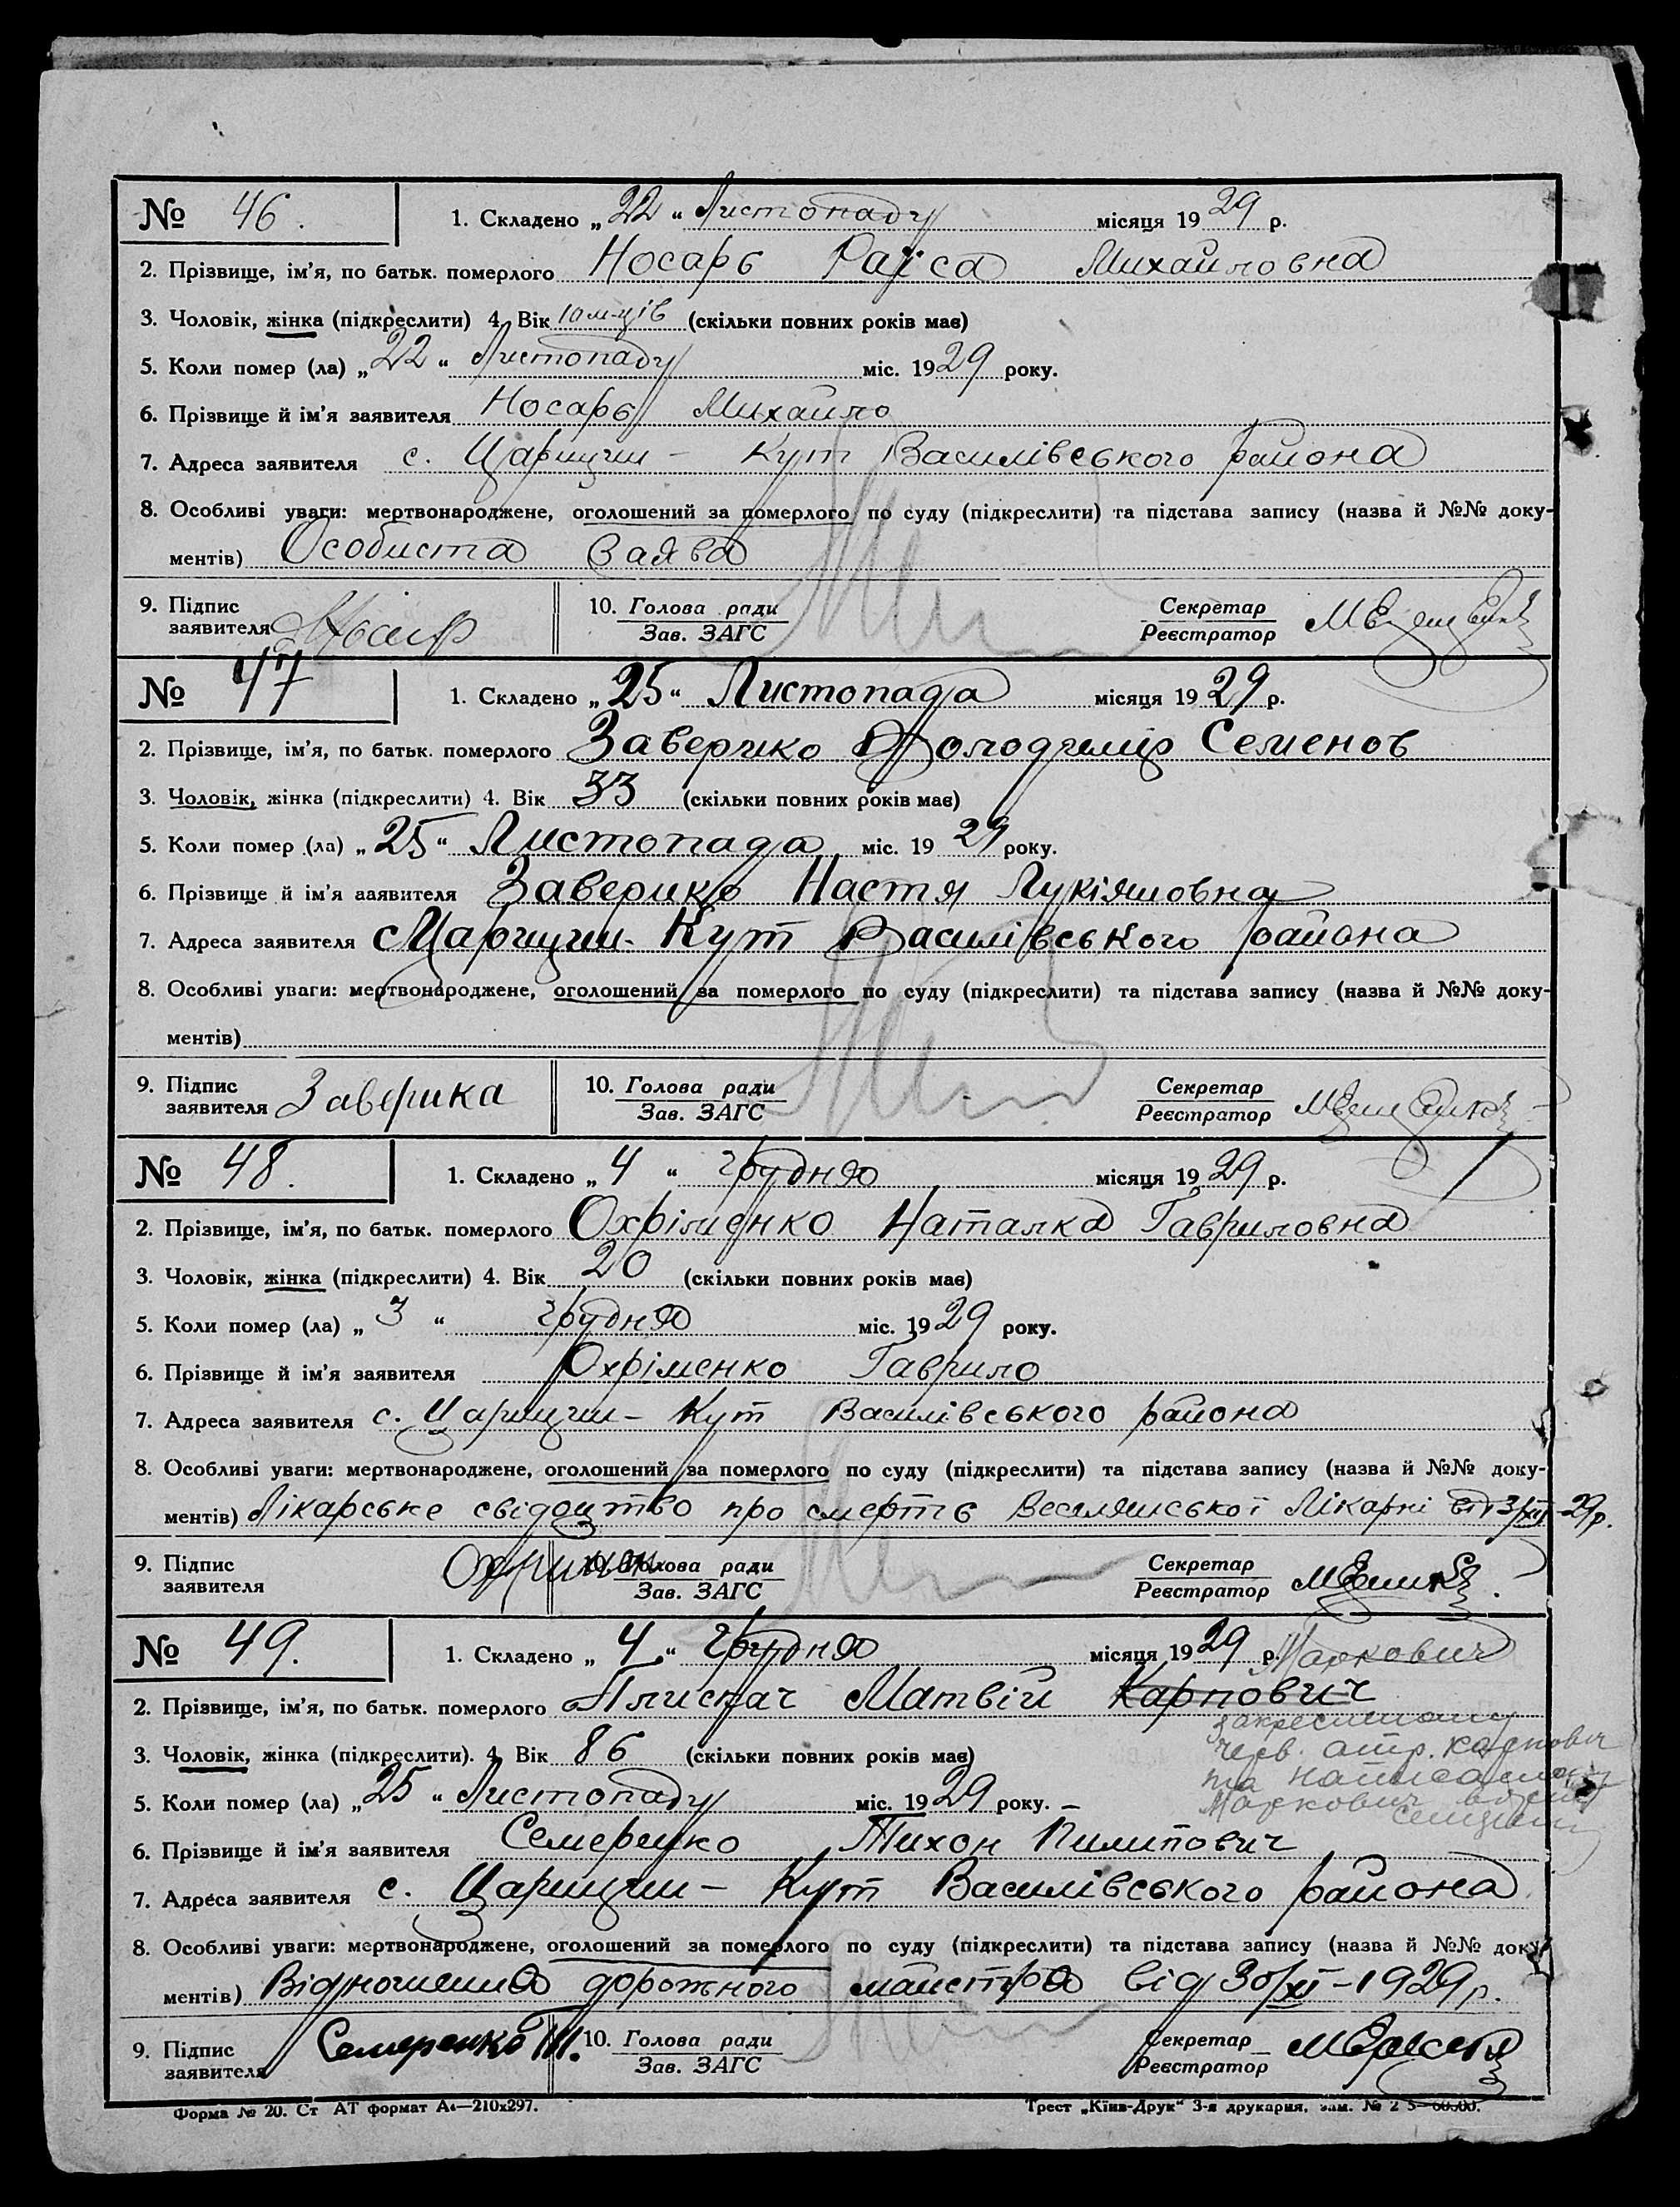 № 46. 1. Складено „22“ Листопаду місяця 1929 р.
2. Прізвище, ім’я, по батьк. померлого Носарь Раїса Михайловна
3. Чоловік, жінка (підкреслити) 4. Вік 10 м-ців (скільки повних років має)
5. Коли помер (ла) „22“ Листопаду міс. 1929 року.
6. Прізвище й ім’я заявителя Носарь Михайло
7. Адреса заявителя с. Царицин-Кут Василівського района
8. Особливі уваги: мертвонароджене, оголошений за померлого по суду (підкреслити) та підстава запису (назва й №№ доку-
ментів) Особиста Заява
9. Підпис заявителя 10. Голова ради Зав. ЗАГС Секретар Реєстратор
№ 47 1. Складено „25“ Листопада місяця 1929 р.
2. Прізвище, ім’я, по батьк. померлого Заверико Володимир Семенов
3. Чоловік, жінка (підкреслити) 4. Вік 33 (скільки повних років має)
5. Коли помер (ла) „25“ Листопада міс. 1929 року.
6. Прізвище й ім’я заявителя Заверико Настя Лукіяновна
7. Адреса заявителя с Царицин-Кут Василівського района
8. Особливі уваги: мертвонароджене, оголошений за померлого по суду (підкреслити) та підстава запису (назва й №№ доку-
ментів)
9. Підпис заявителя Заверика 10. Голова ради Зав. ЗАГС Секретар Реєстратор
№ 48. 1. Складено „4“ Грудня місяця 1929 р.
2. Прізвище, ім’я, по батьк. померлого Охріменко Наталка Гавриловна
3. Чоловік, жінка (підкреслити) 4. Вік 20 (скільки повних років має)
5. Коли помер (ла) „3“ Грудня міс. 1929 року.
6. Прізвище й ім’я заявителя Охріменко Гаврило
7. Адреса заявителя с. Царицин-Кут Василівського района
8. Особливі уваги: мертвонароджене, оголошений за померлого по суду (підкреслити) та підстава запису (назва й №№ доку-
ментів) Лікарське свідоцтво про смерть Веселянської Лікарні від 3/XII-29р.
9. Підпис заявителя 10. Голова ради Зав. ЗАГС Секретар Реєстратор
№ 49. 1. Складено „4“ Грудня місяця 1929 р. Маркович
2. Прізвище, ім’я, по батьк. померлого Плискач Матвій Карпович
закресленому
3. Чоловік, жінка (підкреслити). 4. Вік 86 (скільки повних років має) Карпович
та написаному
5. Коли помер (ла) „25“ Листопаду міс. 1929 року. – Маркович
6. Прізвище й ім’я заявителя Семеренко Тихон Пилипович
7. Адреса заявителя с. Царицин-Кут Василівського района
8. Особливі уваги: мертвонароджене, оголошений за померлого по суду (підкреслити) та підстава запису (назва й №№ доку-
ментів) Відношення дорожного майстра від 30/XI-1929р.
9. Підпис заявителя Семеренко Т. 10. Голова ради Зав. ЗАГС Секретар Реєстратор
Форма № 20. Ст АТ формат А4—210x297. Трест „Київ-Друк“ 3-я друкарня, зам. №